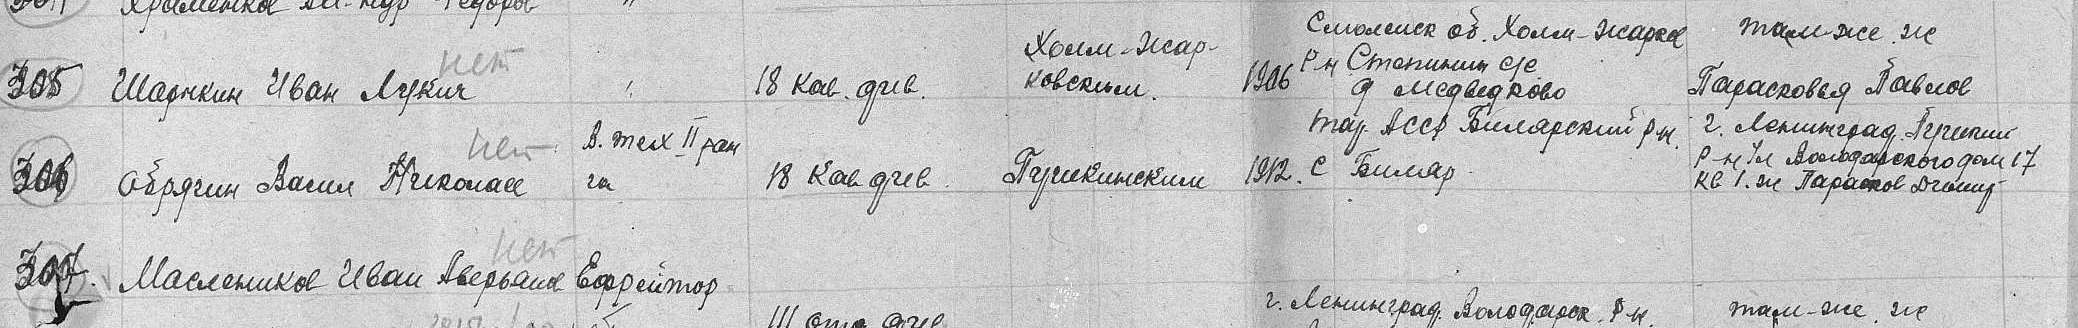 Храменков Ал-кдр Федоров "
Смоленск об. Холм-Жарков там-же. ж
нет Холм-Жар- Р-н Степинин с/с
305 Шарыкин Иван Лукич " 18 кав. див. ковским. 1906 д Медведково Парасковья Павлов
нет В. тех II ран Тат. АССР Билярский р-н. г. Ленинград.
306 Обрягин Васил Николаев га 18 кав. див. Пушкинским 1912. с Биляр Р-н Ул Володарского дом 17
кв 1. ж Парасков Дмитр
нет
307. Маслеников Иван Аверьянов Ефрейтор
III отд. див г. Ленинград. Володарск. Р-н. там-же. ж